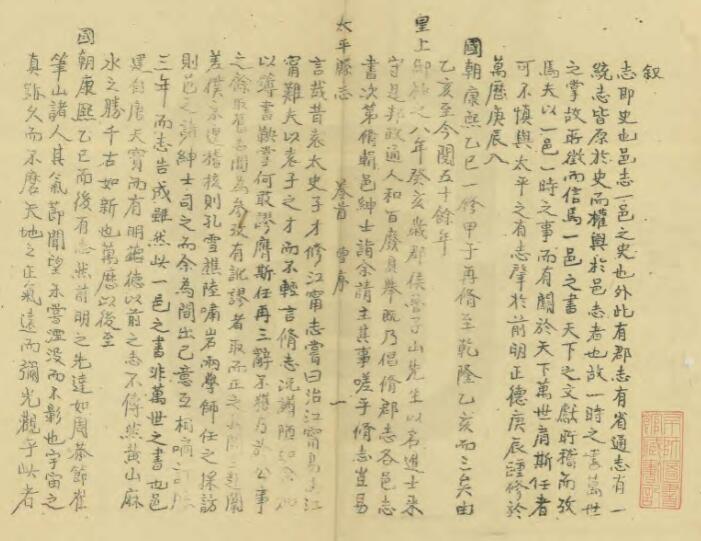 叙
志即史也邑志一邑之史也外此有郡志有省通志有一
統志皆原於史而權輿於邑志者也故一時之書萬世
之掌故所徵而信焉一邑之書天下之文獻所稽而攷
焉夫以一邑一時之事而有關於天下萬世肩斯任者
可不慎與太平之有志肇於前明正德庚辰踵修於
萬曆庚辰入
國朝康熙乙巳一修甲子再脩至乾隆乙亥而三矣由
乙亥至今閱五十餘年
皇上御極之八年癸亥歲郡侯魯子山先生以名進士來
守是邦政通人和百廢具舉既乃倡脩郡志各邑志
書次第脩輯邑紳士詣余請主其事嗟乎脩志豈易
太平縣志 卷首 曹序 一
言哉昔袁太史子才修江甯志嘗曰治江甯易志江
甯難夫以袁子之才而不輕言脩志況譾陋如余
以簿書鞅掌何敢謬膺斯任再三辭不獲乃於公事
之餘取舊志閱為參攷有訛謬者取而正之
差撲不遑搜核則孔雪樵陸嘯岩兩學師任之採訪
則邑之諸紳士司之而余為間出己意互相
三年而志告成雖然此一邑之書非萬世之書也邑
建自唐天寶而有明正德以前之志不傳然黃山麻
水之勝千古如新也萬曆以後至
國朝康熙乙巳而後有志然前明之先達如周恭節崔
筆山諸人其氣節聞望未嘗湮沒而不彰也宇宙之
真跡久而不磨天地之正氣遠而彌光觀乎此者